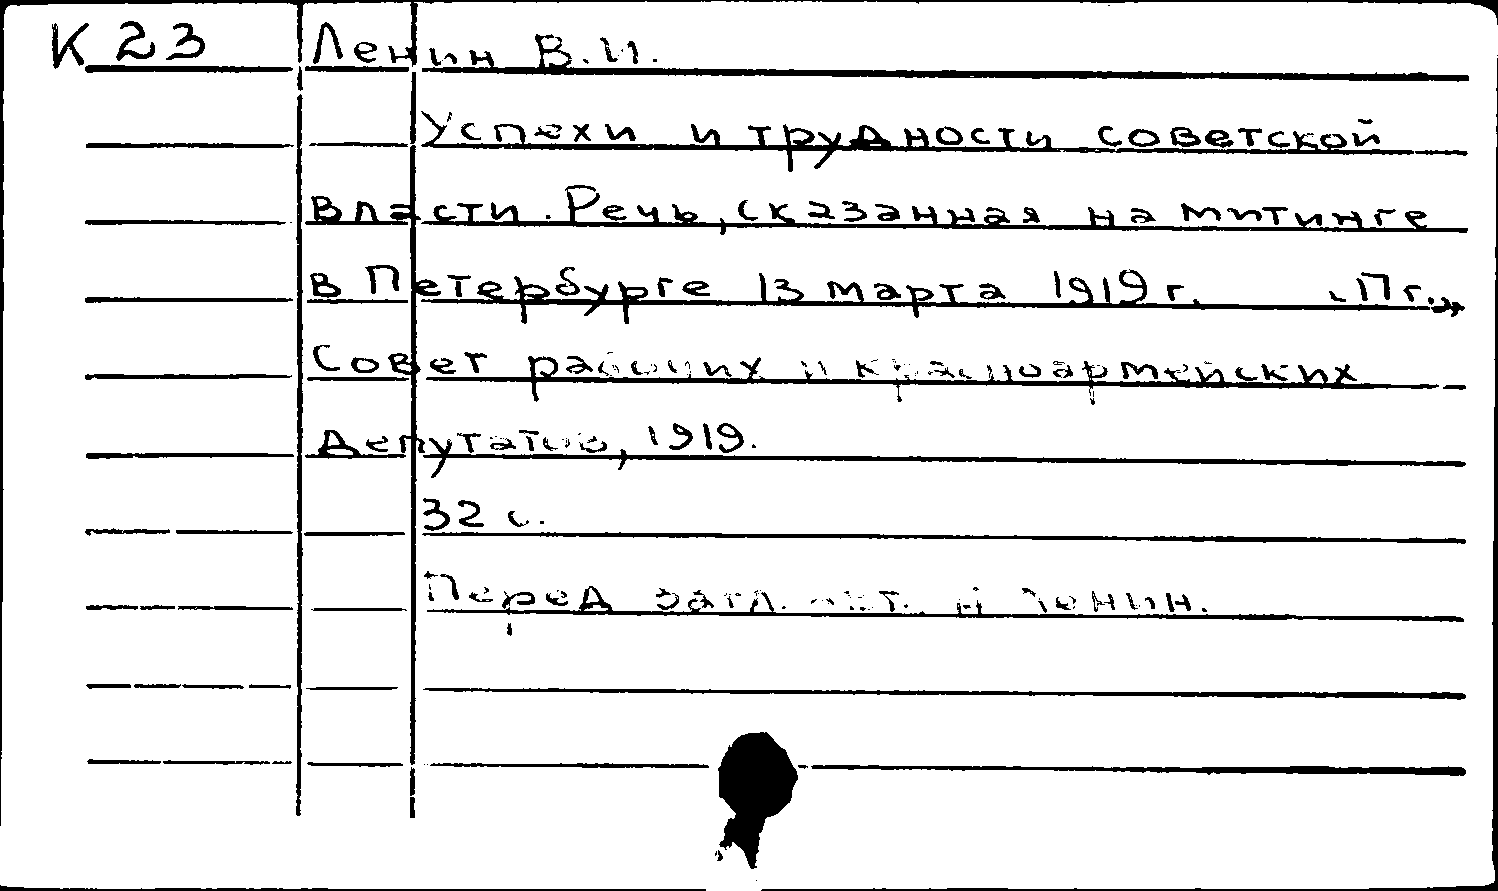 К 23 Ленин В.И.
Успехи и трудности советской
власти. Речь, сказанная на митинге
в Петербурге 13 марта 1919 г. Пг.,
Совет рабочих и красноармейских
депутатов, 1919.
32 с.
Перед загл. авт.: Н Ленин.